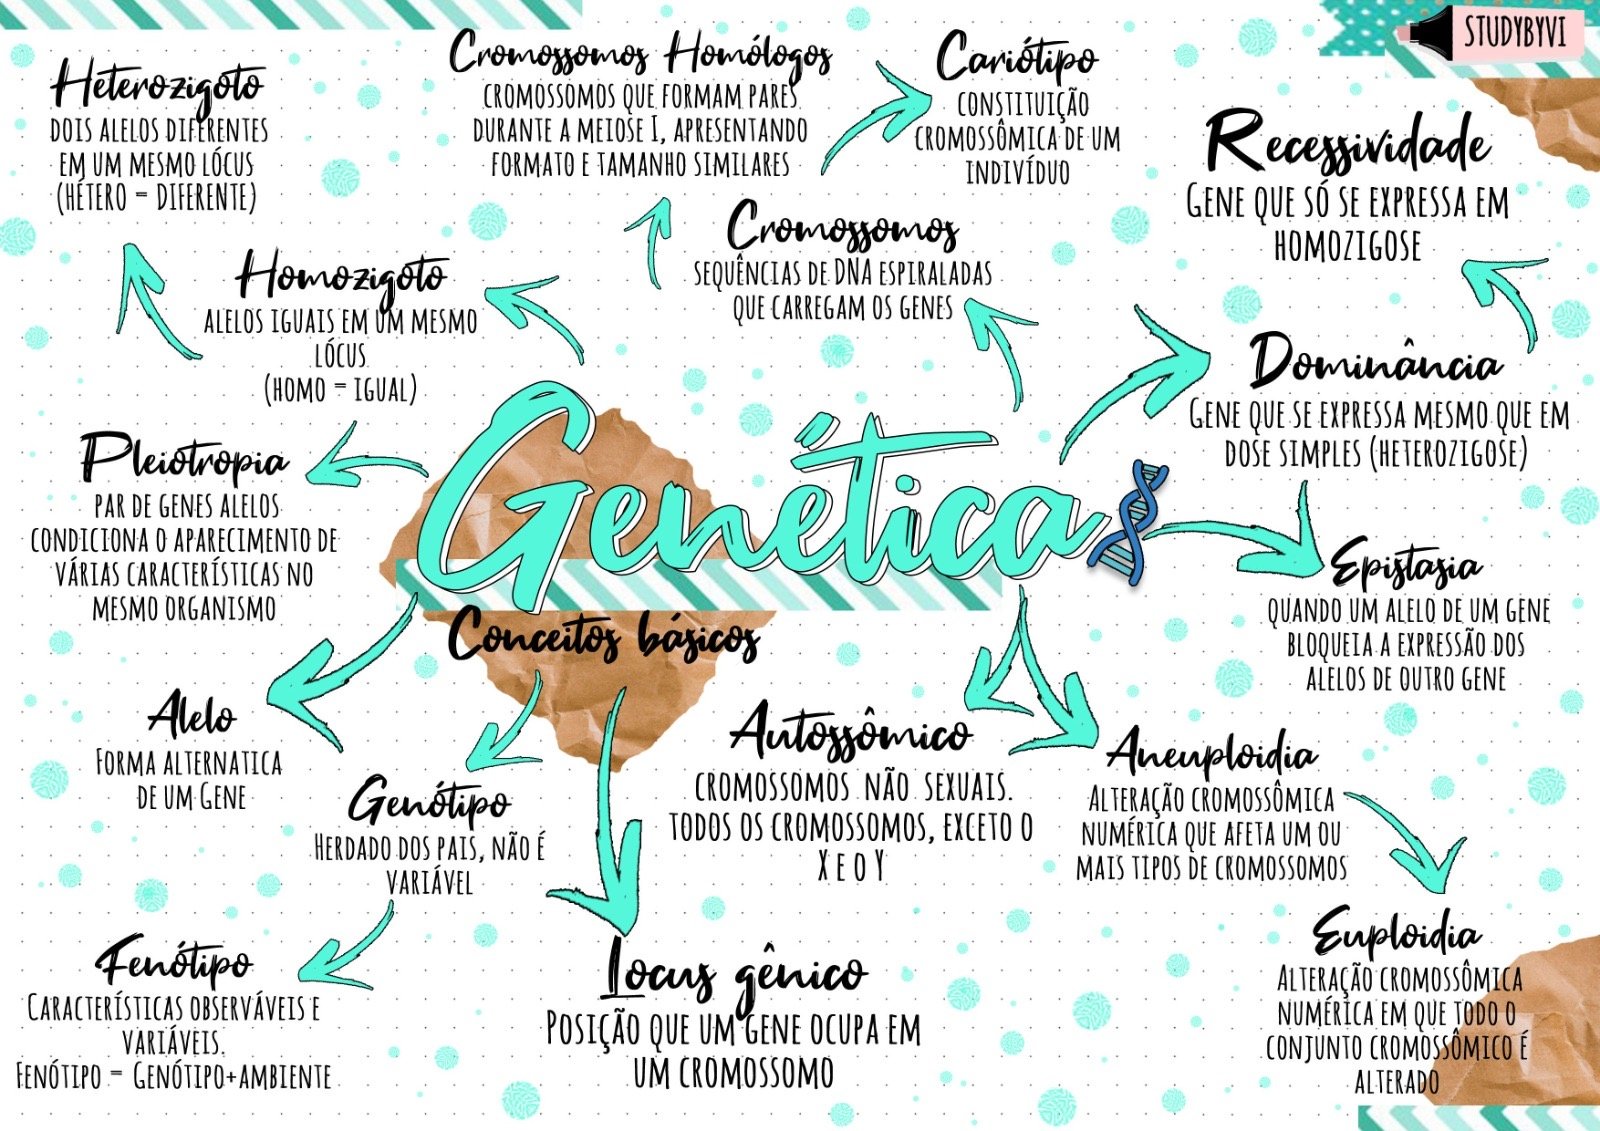 STUDYBYVI
Heterozigoto
DOIS ALELOS DIFERENTES
EM UM MESMO LÓCUS
(HÉTERO = DIFERENTE)
Cromossomos Homólogos
CROMOSSOMOS QUE FORMAM PARES
DURANTE A MEIOSE I, APRESENTANDO
FORMATO E TAMANHO SIMILARES
Cariótipo
CONSTITUIÇÃO
CROMOSSÔMICA DE UM
INDIVÍDUO
Recessividade
GENE QUE SÓ SE EXPRESSA EM
HOMOZIGOSE
Homozigoto
ALELOS IGUAIS EM UM MESMO
LÓCUS
(HOMO = IGUAL)
Cromossomos
SEQUÊNCIAS DE DNA ESPIRALADAS
QUE CARREGAM OS GENES
Dominância
GENE QUE SE EXPRESSA MESMO QUE EM
DOSE SIMPLES (HETEROZIGOSE)
Pleiotropia
PAR DE GENES ALELOS
CONDICIONA O APARECIMENTO DE
VÁRIAS CARACTERÍSTICAS NO
MESMO ORGANISMO
Genética
Conceitos básicos
Epistasia
QUANDO UM ALELO DE UM GENE
BLOQUEIA A EXPRESSÃO DOS
ALELOS DE OUTRO GENE
Alelo
FORMA ALTERNATICA
DE UM GENE
Genótipo
HERDADO DOS PAIS, NÃO É
VARIÁVEL
Autossômico
CROMOSSOMOS NÃO SEXUAIS.
TODOS OS CROMOSSOMOS, EXCETO O
X E O Y
Aneuploidia
ALTERAÇÃO CROMOSSÔMICA
NUMÉRICA QUE AFETA UM OU
MAIS TIPOS DE CROMOSSOMOS
Fenótipo
CARACTERÍSTICAS OBSERVÁVEIS E
VARIÁVEIS.
FENÓTIPO = GENÓTIPO+AMBIENTE
Locus gênico
POSIÇÃO QUE UM GENE OCUPA EM
UM CROMOSSOMO
Euploidia
ALTERAÇÃO CROMOSSÔMICA
NUMÉRICA EM QUE TODO O
CONJUNTO CROMOSSÔMICO É
ALTERADO